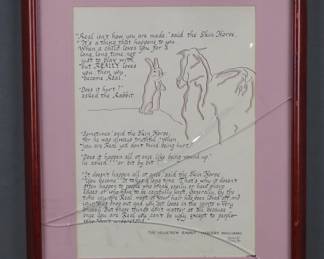 "Real isn't how you are made," said the Skin Horse.
"It's a thing that happens to you.
When a child loves you for a
long, long time, not
just to play with,
but REALLY loves
you, then you
become Real."
"Does it hurt?"
asked the Rabbit.
"Sometimes," said the Skin Horse,
for he was always truthful. "When
you are Real you don't mind being hurt."
"Does it happen all at once, like being wound up,"
he asked, "or bit by bit?"
"It doesn't happen all at once," said the Skin Horse.
"You become. It takes a long time. That's why it doesn't
often happen to people who break easily, or have sharp
edges, or who have to be carefully kept. Generally, by the
time you are Real, most of your hair has been loved off, and
your eyes drop out and you get loose in the joints and very
shabby. But these things don't matter at all, because
once you are Real you can't be ugly, except to people
who don't understand."
THE VELVETEEN RABBIT MARGERY WILLIAMS